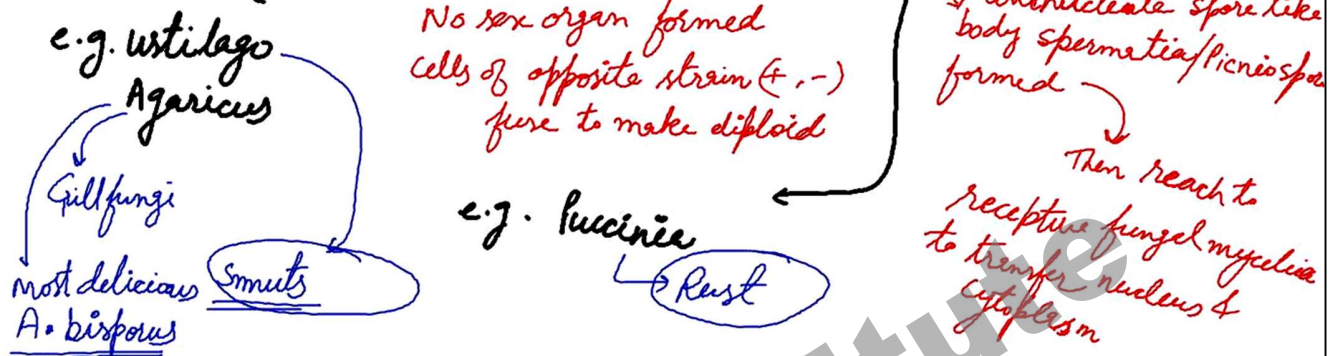 e.g. Ustilago
Agaricus
Gill fungi
Most delicious
A. bisporus
Smuts
No sex organ formed
cells of opposite strain (+, -)
fuse to make diploid
e.g. Puccinia
Rust
spore like
body spermatia/Picniospo
formed
Then reach to
receptive fungal mycelia
to transfer nucleus &
cytoplasm
tute